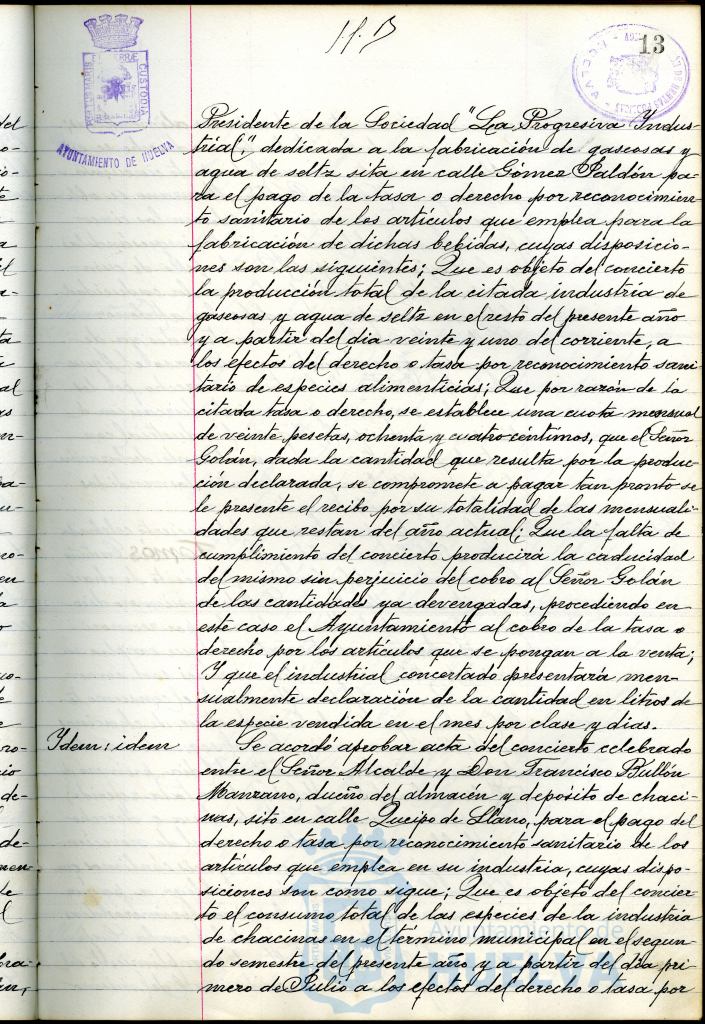 13
AYUNTAMIENTO DE HUELVA
Presidente de la Sociedad "La Progresiva Indus-
trial", dedicada a la fabricación de gaseosas y
agua de seltz sita en calle Gómez Jaldón pa-
ra el pago de la tasa o derecho por reconocimien-
to sanitario de los artículos que emplea para la
fabricación de dichas bebidas, cuyas disposicio-
nes son las siguientes; Que es objeto del concierto
la producción total de la citada industria de
gaseosas y agua de seltz en el resto del presente año
y a partir del dia veinte y uno del corriente, a
los efectos del derecho o tasa por reconocimiento sani-
tario de especies alimenticias; Que por razón de la
citada tasa o derecho, se establece una cuota mensual
de veinte pesetas, ochenta y cuatro céntimos, que el Señor
Golán, dada la cantidad que resulta por la produc-
ción declarada, se compromete a pagar tan pronto se
le presente el recibo por su totalidad de las mensuali-
dades que restan del año actual; Que la falta de
cumplimiento del concierto producirá la caducidad
del mismo sin perjuicio del cobro al Señor Golán
de las cantidades ya devengadas, procediendo en
este caso el Ayuntamiento al cobro de la tasa o
derecho por los artículos que se pongan a la venta;
Y que el industrial concertado presentará men-
sualmente declaración de la cantidad en litros de
la especie vendida en el mes por clase y dias.
Ydem: idem
Se acordó aprobar acta del concierto celebrado
entre el Señor Alcalde y Don Francisco Bullón
Manzano, dueño del almacén y depósito de chaci-
nas, sito en calle Queipo de Llano, para el pago del
derecho o tasa por reconocimiento sanitario de los
artículos que emplea en su industria, cuyas dispo-
siciones son como sigue; Que es objeto del concier-
to el consumo total de las especies de la industria
de chacinas en el término municipal en el segun-
do semestre del presente año y a partir del dia pri-
mero de Julio a los efectos del derecho o tasa por
Ayuntamiento de
HUELVA